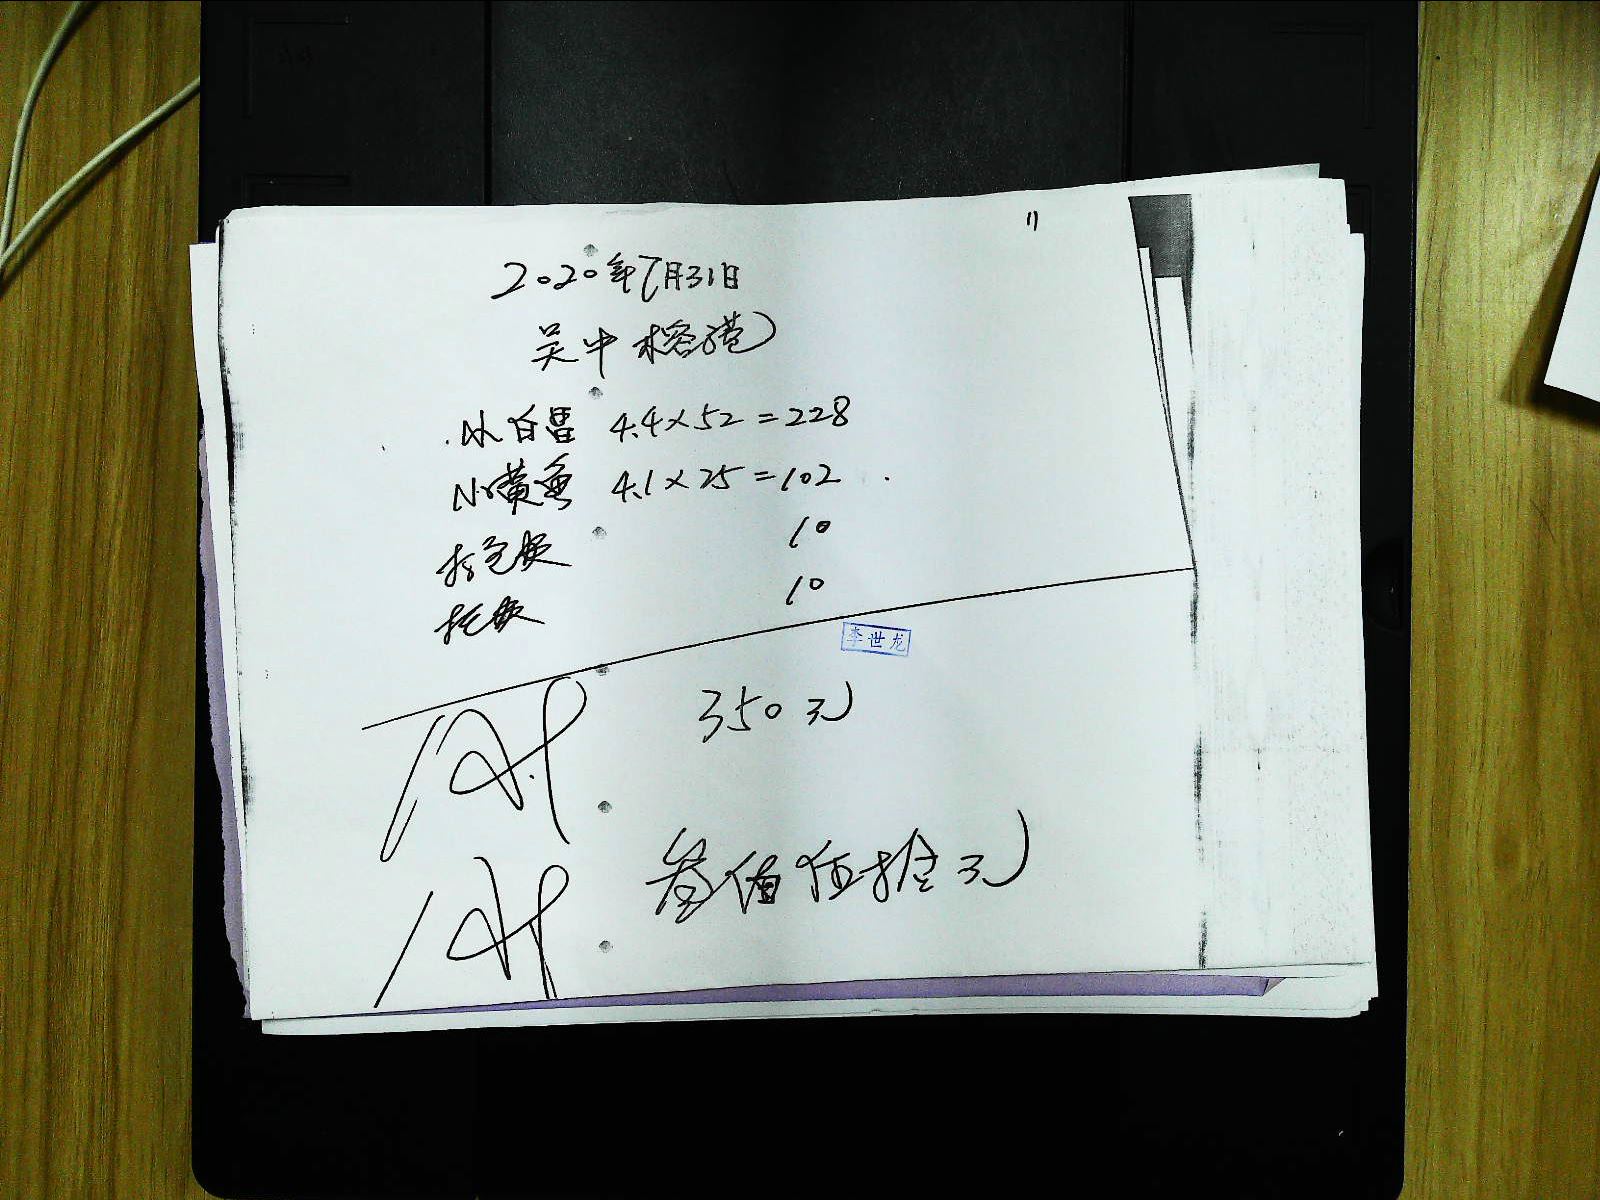 11
2020年7月31日
吴中榕港
小白昌 4.4×52=228
小黄鱼 4.1×25=102
打包费 10
托费 10
李世龙
350元
叁佰伍拾元